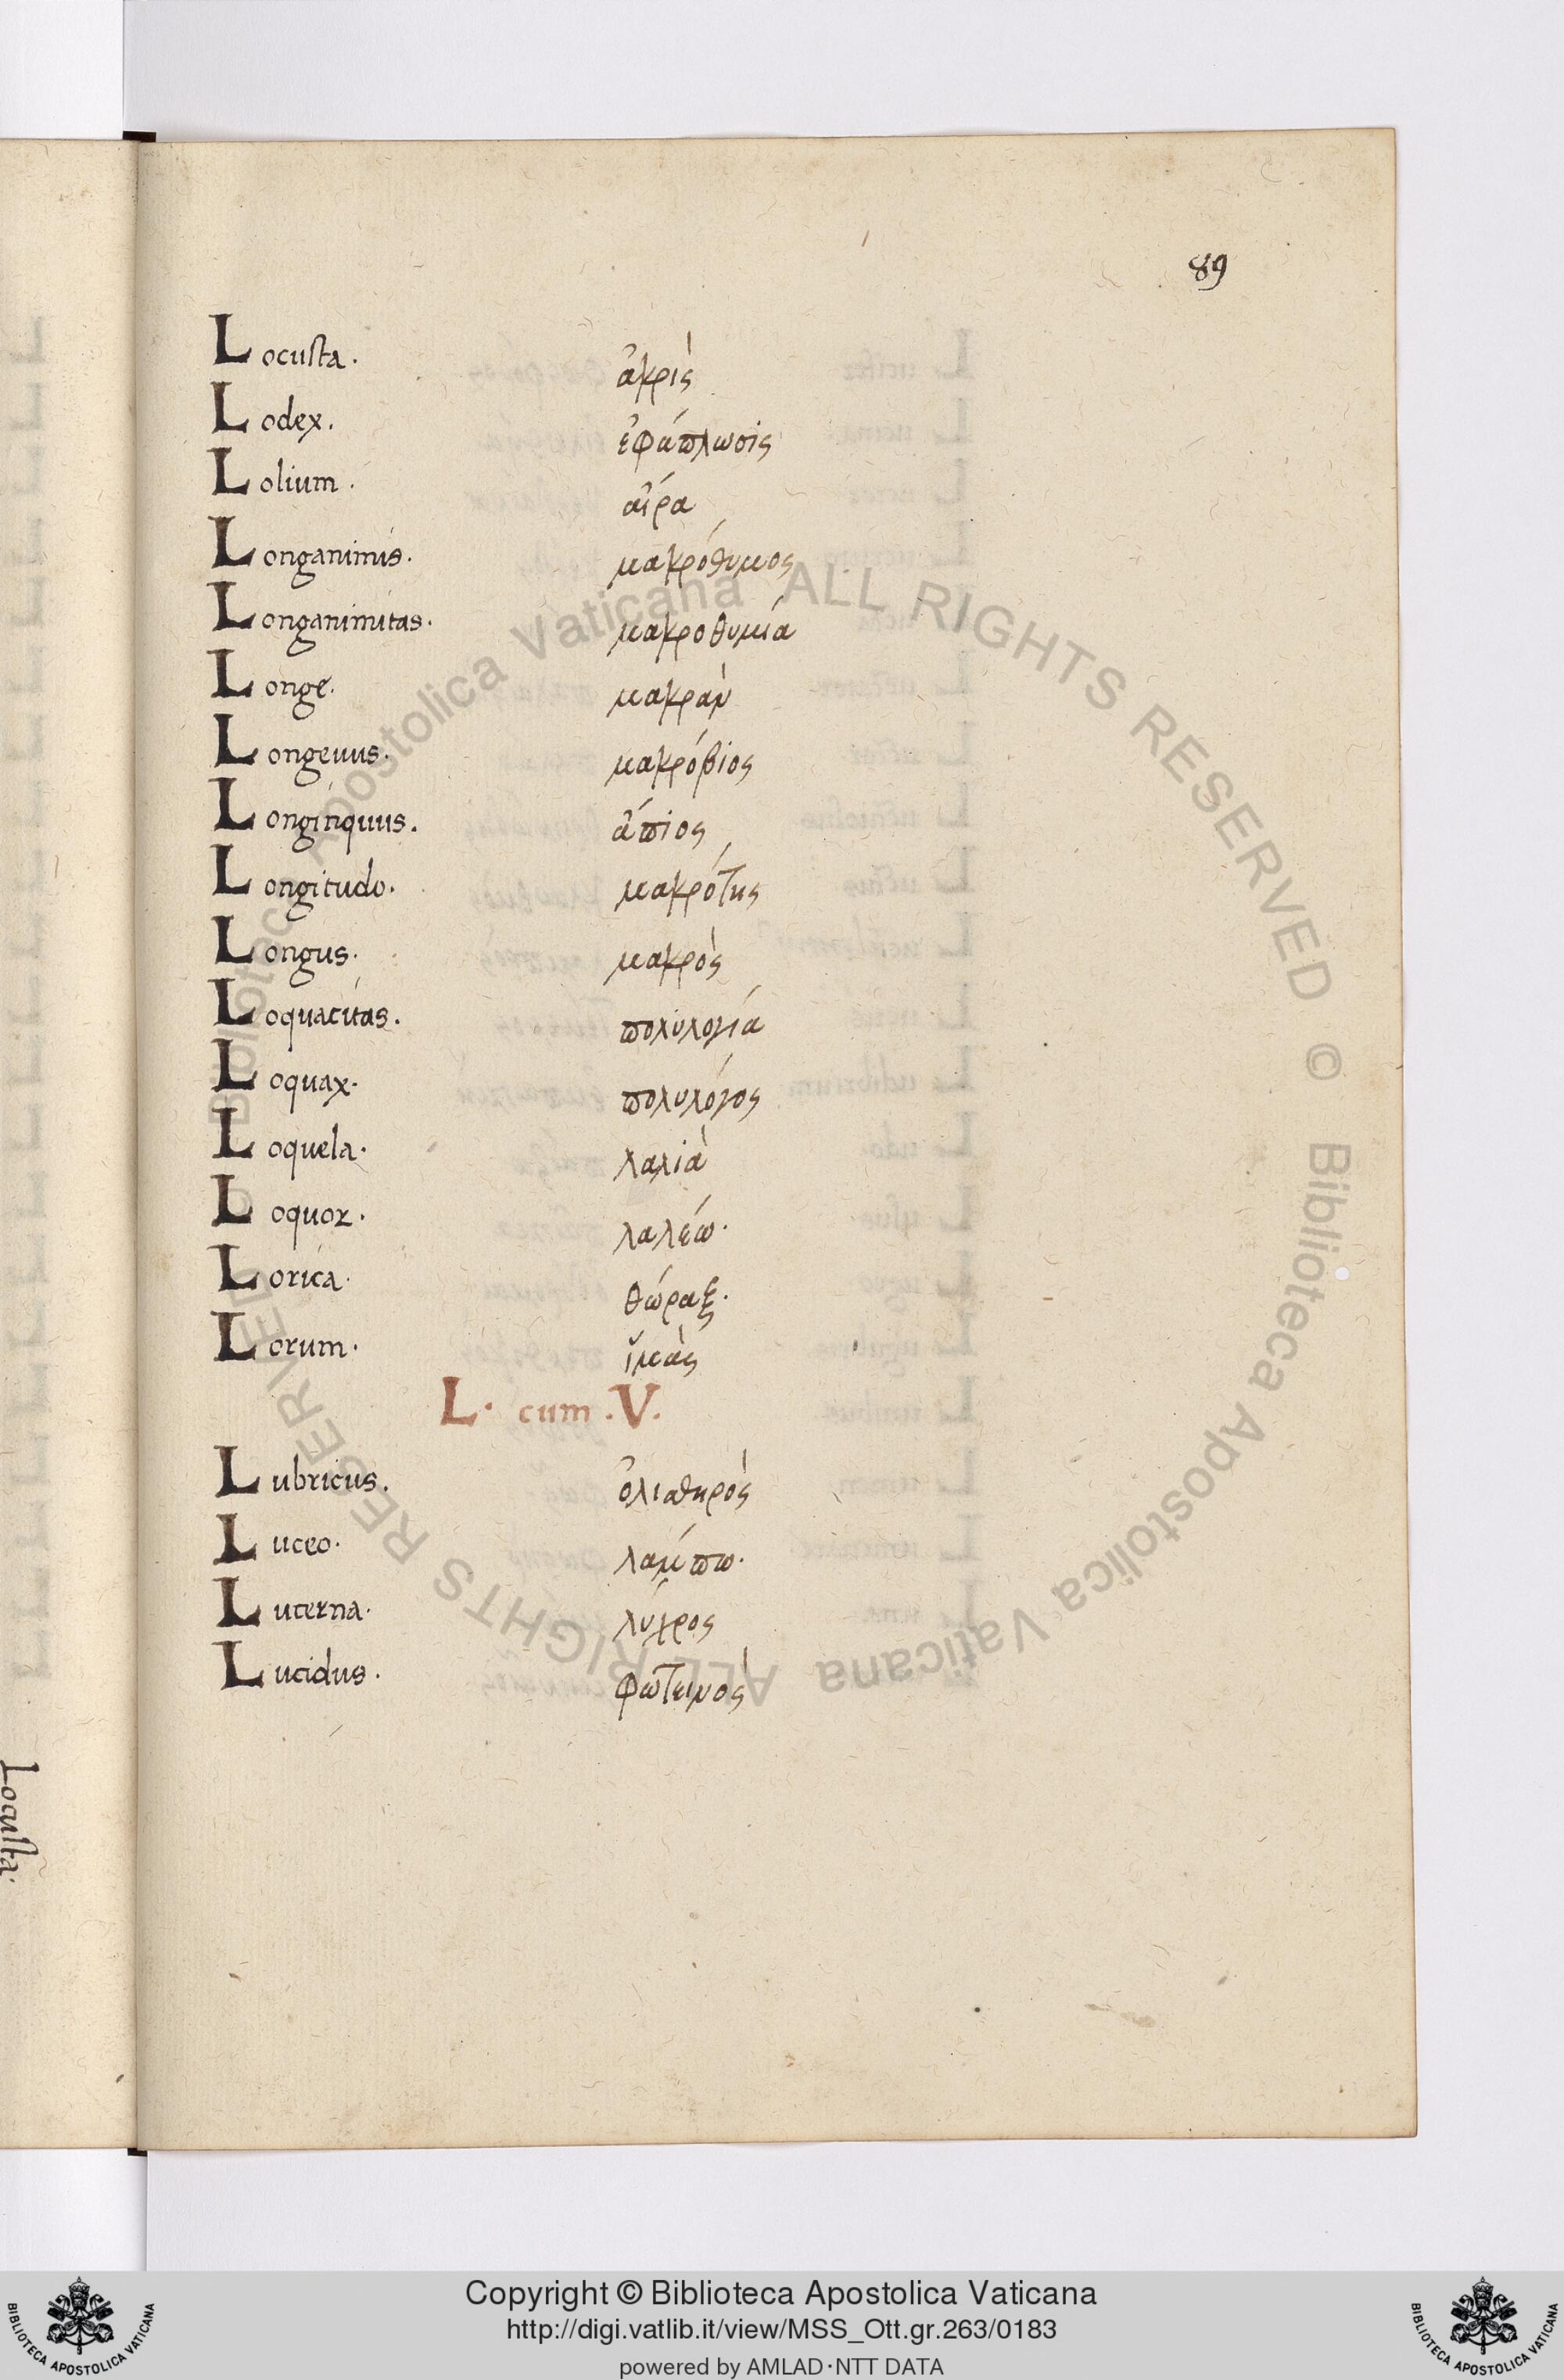 89
Locusta. ἀκρὶς
Lodex. ἐφάπλωσις
Lolium. αἴρα
Longanimis. μακρόθυμος
Longanimitas. μακροθυμία
Longe. μακρὰν
Longeuus. μακρόβιος
Longinquus. ἄπιος
Longitudo. μακρότης
Longus. μακρὸς
Loquacitas. πολυλογία
Loquax. πολυλόγος
Loquela. λαλιὰ
Loquor. λαλέω.
Lorica. θώραξ.
Lorum. ἱμὰς
L. cum .V.
Lubricus. ὀλισθηρὸς
Luceo. λάμπω.
Lucerna. λύχνος
Lucidus. φωτεινὸς
Locusta.
Biblioteca Apostolica Vaticana ALL RIGHTS RESERVED © Biblioteca Apostolica Vaticana ALL RIGHTS RESERVED
Copyright © Biblioteca Apostolica Vaticana
http://digi.vatlib.it/view/MSS_Ott.gr.263/0183
powered by AMLAD·NTT DATA
BIBLIOTECA APOSTOLICA VATICANA
BIBLIOTECA APOSTOLICA VATICANA